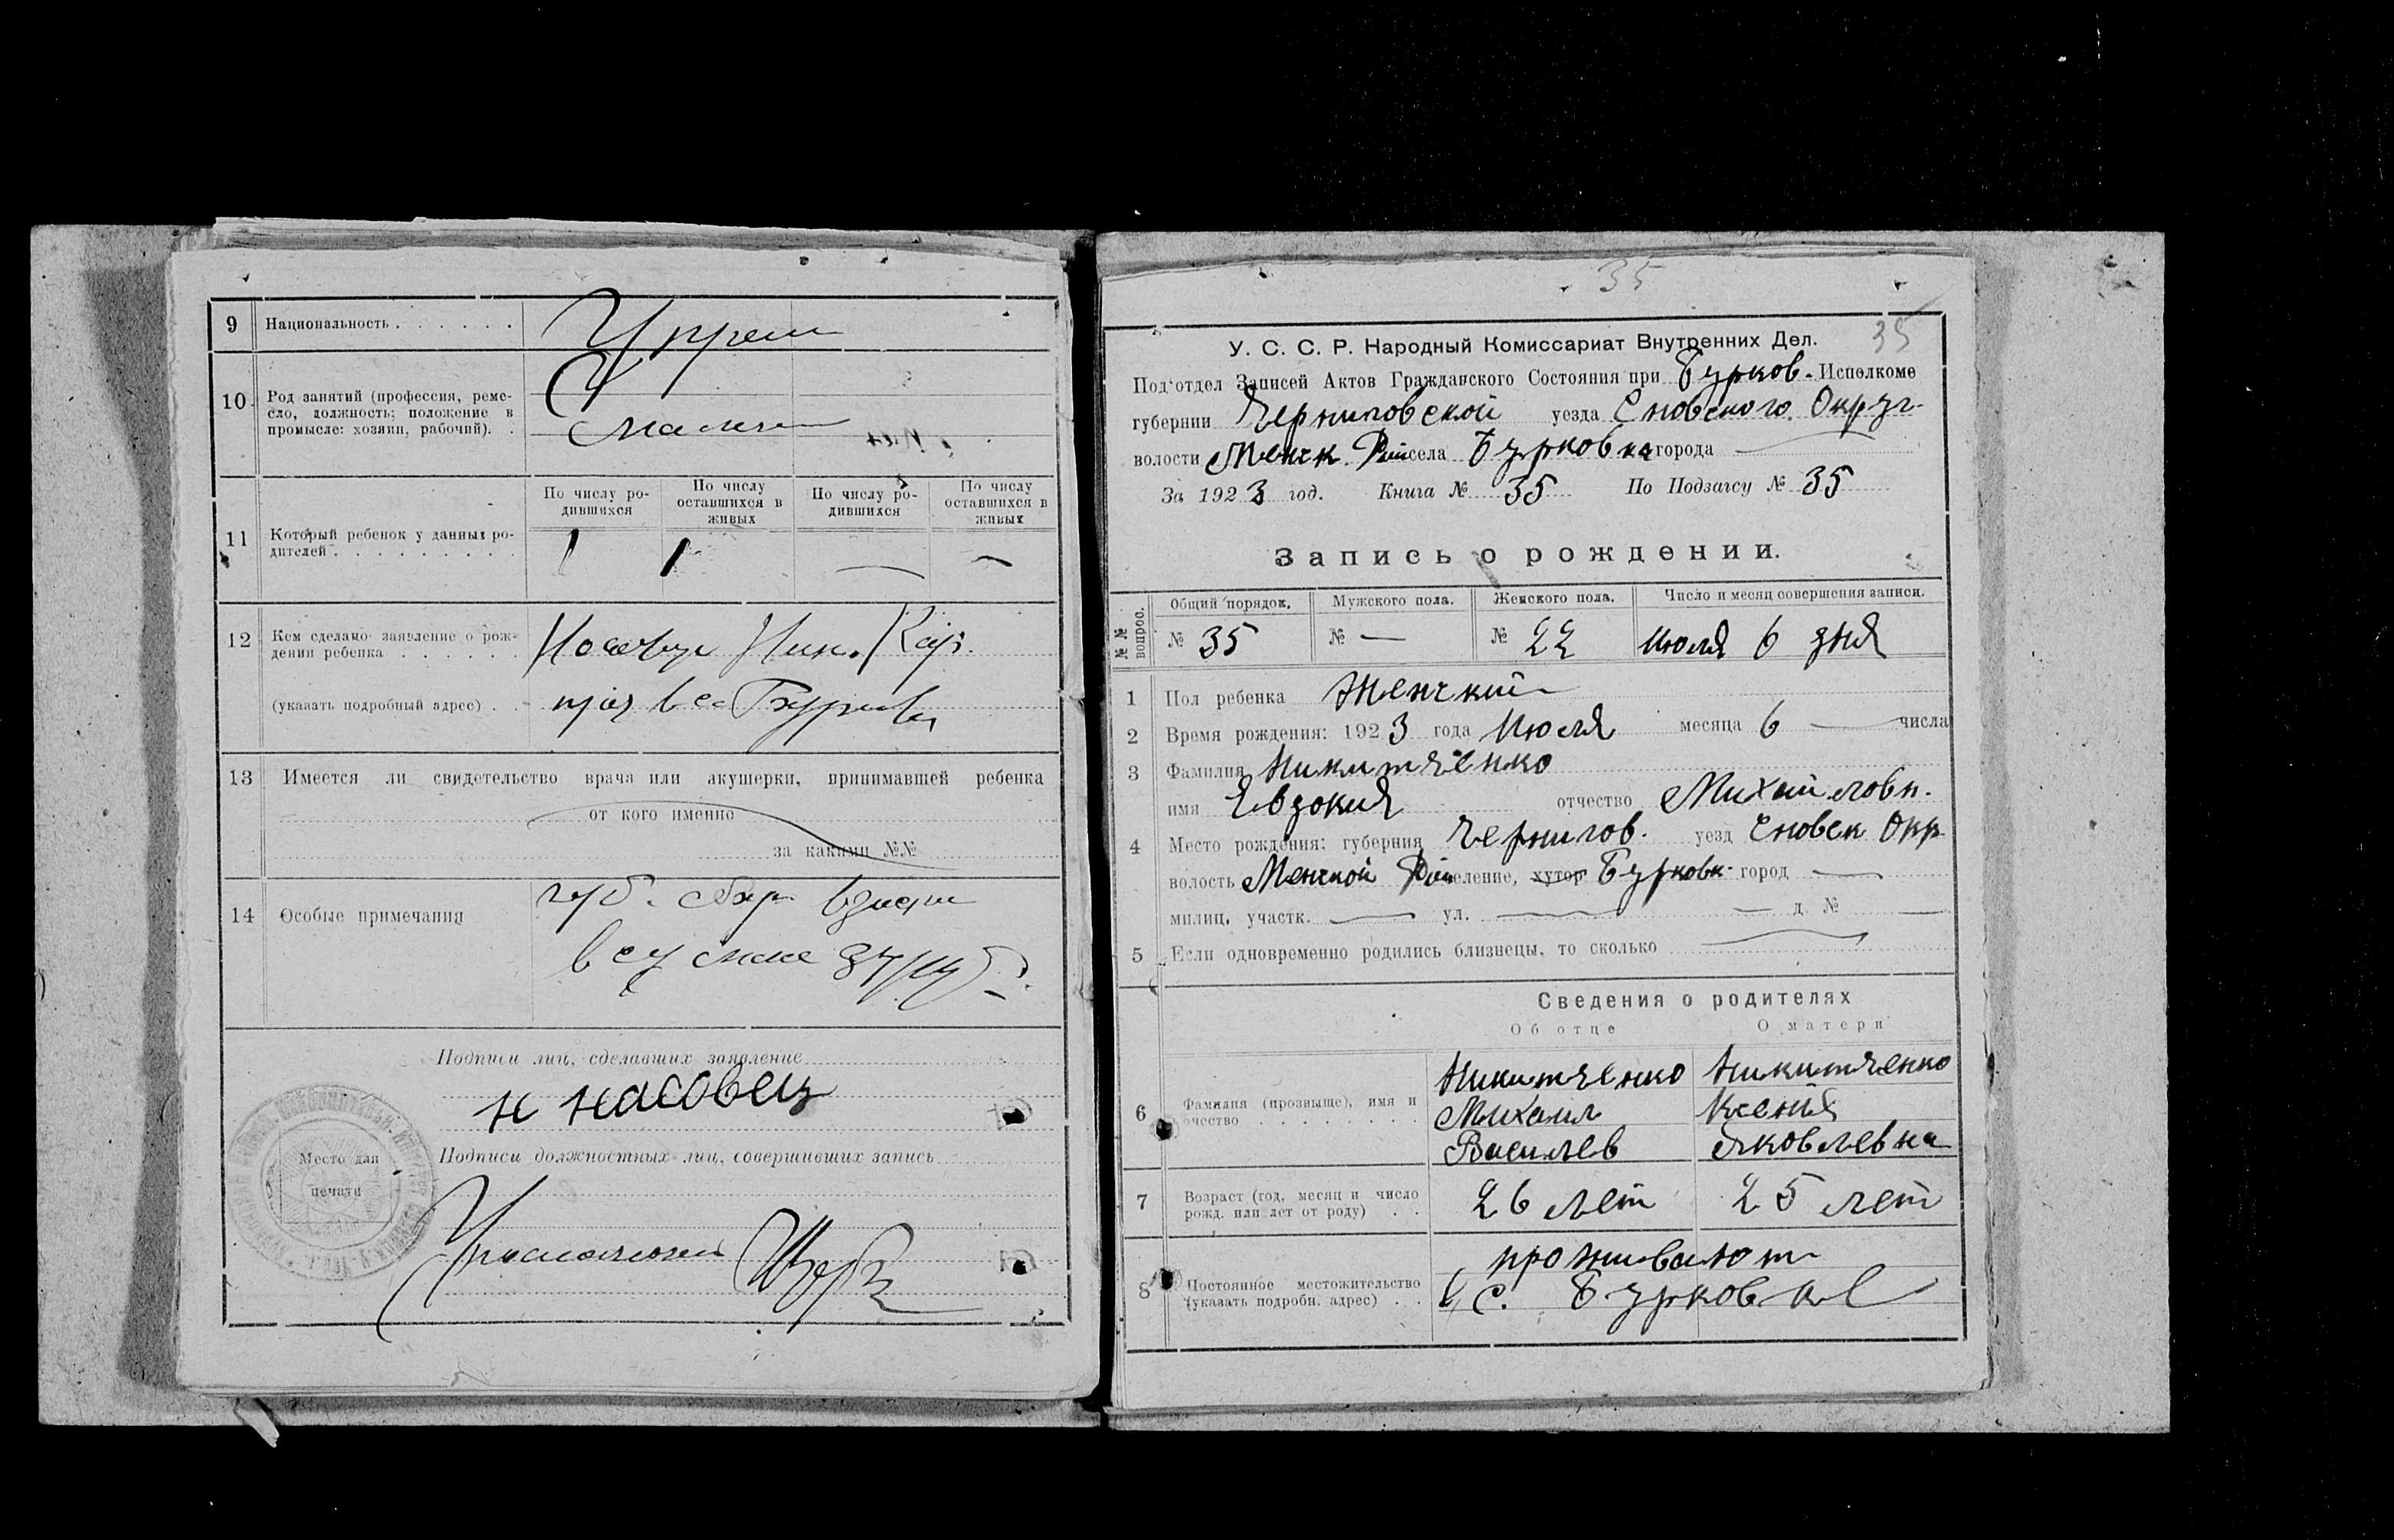 9 Национальность
10 Род занятий (профессия, реме-
сло, должность; положение в
промысле: хозяин, рабочий).
11 Который ребенок у данных ро-
дителей
По числу ро-
дившихся
По числу
оставшихся в
живых
По числу ро-
дившихся
По числу
оставшихся в
живых
1 1 — —
12 Кем сделано заявление о рож-
дении ребенка
(указать подробный адрес)
13 Имеется ли свидетельство врача или акушерки, принимавшей ребенка
от кого именно
за какими №№
14 Особые примечания
Подписи лиц, сделавших заявление
Н Насовец
Подписи должностных лиц, совершивших запись
Место для
печати
35
35
У. С. С. Р. Народный Комиссариат Внутренних Дел.
Под'отдел Записей Актов Гражданского Состояния при Бурков. Исполкоме
губернии Черниговской уезда Сновского Округ.
волости Менск. села Бурковка города —
За 1923 год. Книга № 35 По Подзагсу № 35
Запись о рождении.
№№ вопрос.
Общий порядок. Мужского пола. Женского пола. Число и месяц совершения записи.
№ 35 № — № 22 Июля 6 дня
1 Пол ребенка Женский
2 Время рождения: 1923 года Июля месяца 6 — числа
3 Фамилия Никитченко
имя Евдокия отчество Михайловн.
4 Место рождения: губерния Чернигов. уезд Сновск Окр
волость Менской селение, хутор Бурковк. город —
милиц. участк. — ул. — — д. № —
5 Если одновременно родились близнецы, то сколько —
Сведения о родителях
Об отце О матери
6 Фамилия (прозвище), имя и
отчество
Никитченко
Михаил
Васильев
Никитченко
Ксения
Яковлевна
7 Возраст (год, месяц и число
рожд. или лет от роду)
26 лет 25 лет
8 Постоянное местожительство
(указать подробн. адрес)
проживают
в с. Бурковке